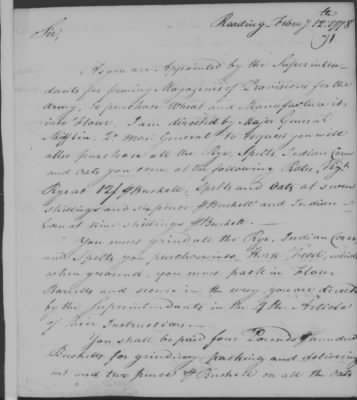 Reading Febry 12th 1778
71
Sir,
As you are Appointed by the Superinten-
dants for forming Magazines of Provisions for the
Army, to purchase Wheat and Manufacture it
into Flour, I am directed by Major General
Mifflin, Qr Mar General to request you will
also purchase all the Rye, Spelts, Indian Corn
and Oats you can at the following Rates,
Rye at 12/ Bushell, Spelts and Oats at seven
shillings and six pence Bushell and Indian
Corn at nine shillings Bushell.
You must grind all the Rye, Indian Corn,
and Spelts you purchase into Horse Feed, which
when ground, you must pack in Flour
Barrells and secure in the way you are directed
by the Superintendants in the 4th Article
of their Instructions.
You shall be paid four Pounds hundred
Bushells for grinding, packing and delivering
and two pence Bushell on all the Oats